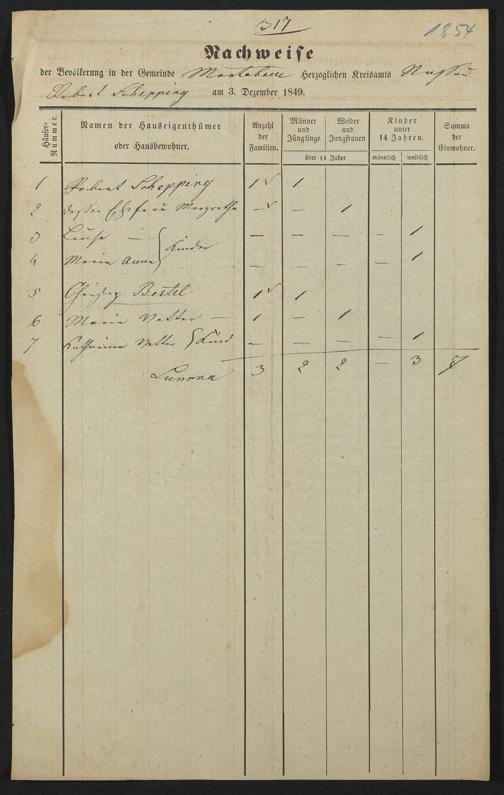 317
1854
Nachweise
der Bevölkerung in der Gemeinde Herzoglichen Kreisamts Nassau
Robert Schepping am 3. Dezember 1849.
Häuser-Nummer.
Namen der Hauseigenthümer
oder Hausbewohner.
Anzahl
der
Familien.
Männer
und
Jünglinge.
Weiber
und
Jungfrauen
über 14 Jahre
Kinder
unter
14 Jahren.
männlich weiblich
Summa
der
Einwohner.
1 Robert Schepping 1 1
2 dessen Ehefrau Margretha — — 1
3 — — — — — 1
4 Maria Anna } Kinder — — — — 1
5 Bestel 1 1
6 Maria Vetter — 1 — 1
7 Katharina Vetter } Kind — — — — 1
Summa 3 2 2 — 3 7